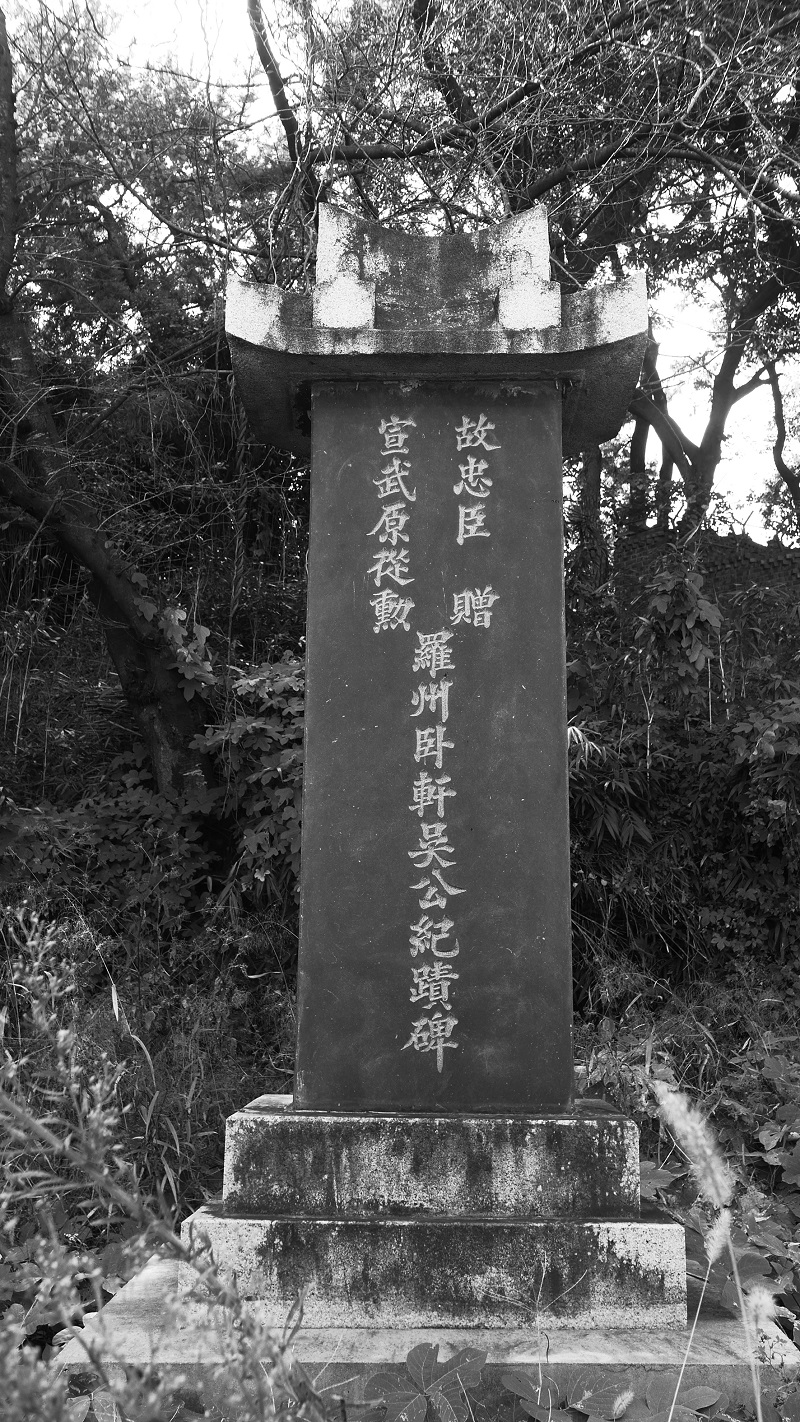 故忠臣 贈
宣武原從勳
羅州卧軒吳公紀蹟碑